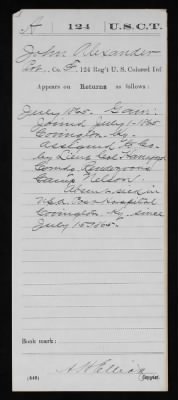 A | 124 | U.S.C.T.
John Alexander
Pvt., Co. F, 124 Reg't U. S. Colored Inf.
Appears on Returns as follows:
July 1865. Gain:
Joined July 1865
Covington Ky.
Assigned to Co.
by Lieut Col
Comdg Rendezvous
Camp Nelson.
Absent sick in
U.S.A. Post Hospital
Covington Ky. since
July 15 1865.
Book mark:
(546)
Copyist.